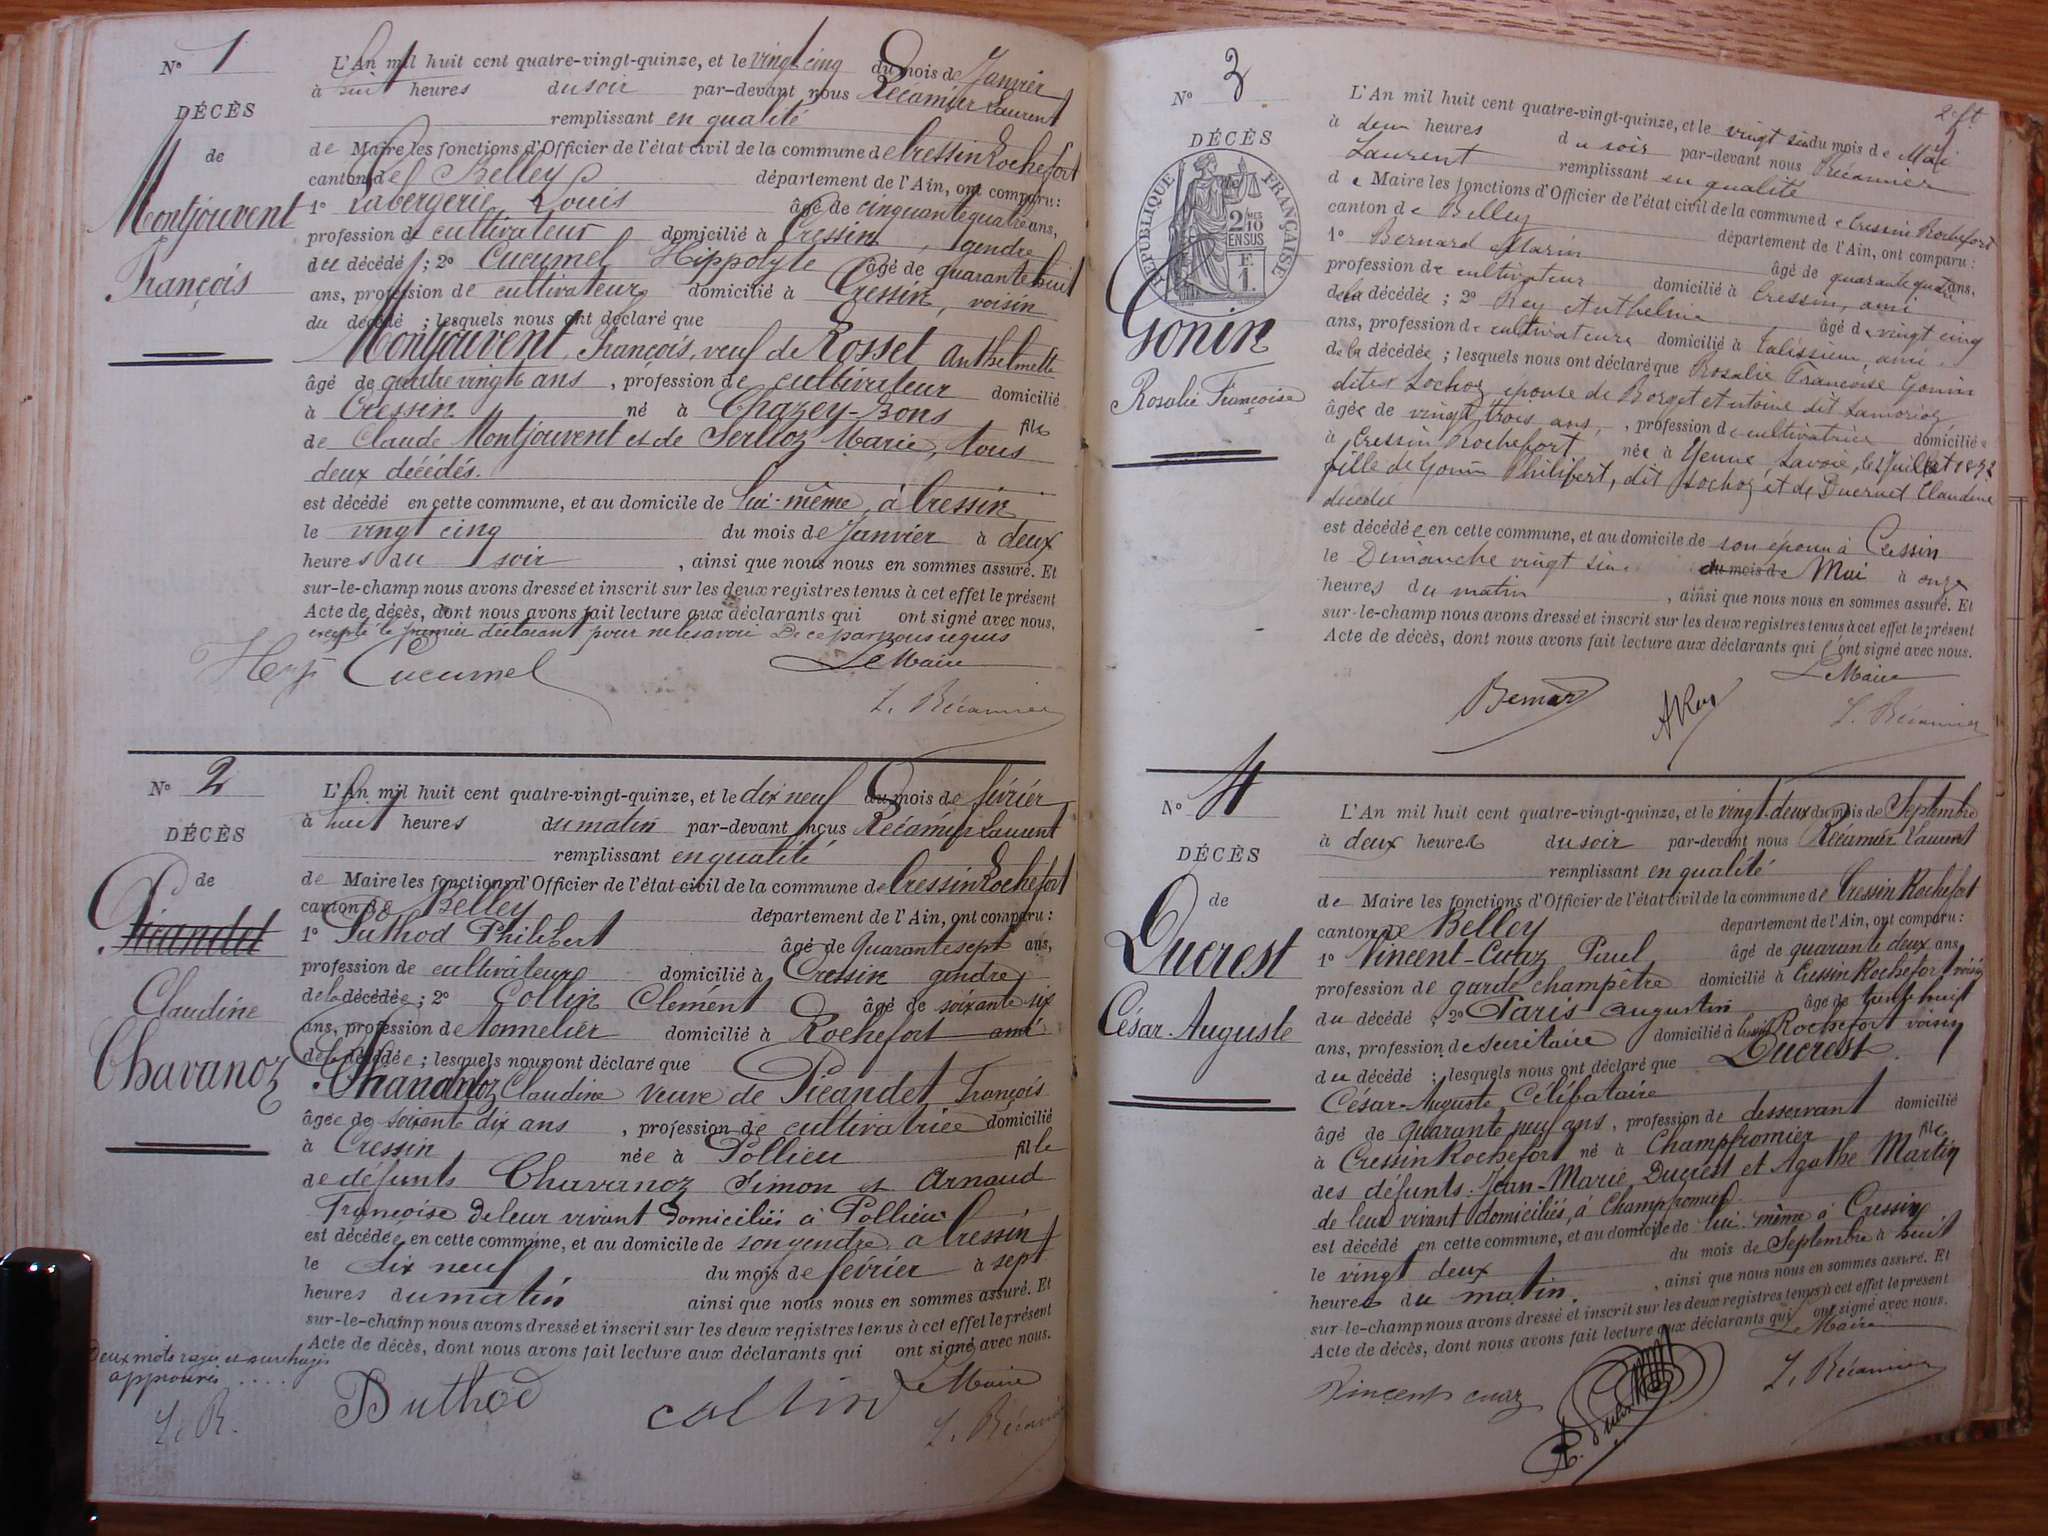 N° 1
DÉCÈS
de
Montjouvent
François
L'An mil huit cent quatre-vingt-quinze, et le vingt cinq du mois de Janvier
à huit heures du soir par-devant nous Récamier Laurent
remplissant en qualité
de Maire les fonctions d'Officier de l'état civil de la commune de Cressin Rochefort
canton de Belley département de l'Ain, ont comparu :
1° Labergerie Louis âgé de cinquante quatre ans,
profession de cultivateur domicilié à Cressin, gendre
du décédé ; 2° Cucumel Hippolyte âgé de quarante huit
ans, profession de cultivateur domicilié à Cressin, voisin
du décédé ; lesquels nous ont déclaré que
Montjouvent, François, veuf de Rosset Anthelmette
âgé de quatre vingts ans, profession de cultivateur domicilié
à Cressin né à Chazey-Bons fils
de Claude Montjouvent et de Serlloz Marie, tous
deux décédés.
est décédé en cette commune, et au domicile de lui-même, à Cressin
le vingt cinq du mois de Janvier à deux
heures du soir, ainsi que nous nous en sommes assuré. Et
sur-le-champ nous avons dressé et inscrit sur les deux registres tenus à cet effet le présent
Acte de décès, dont nous avons fait lecture aux déclarants qui ont signé avec nous,
excepté le premier déclarant pour ne le savoir De ce par nous requis
Hyp Cucumel
Le Maire
L. Récamier
N° 2
DÉCÈS
de
Picandet
Claudine
Chavanoz
L'An mil huit cent quatre-vingt-quinze, et le dix neuf du mois de février
à huit heures du matin par-devant nous Récamier Laurent
remplissant en qualité
de Maire les fonctions d'Officier de l'état civil de la commune de Cressin Rochefort
canton de Belley département de l'Ain, ont comparu :
1° Puthod Philibert âgé de quarante sept ans,
profession de cultivateur domicilié à Cressin gendre
de la décédée ; 2° Collin Clément âgé de soixante six
ans, profession de tonnelier domicilié à Rochefort ami
de la décédée ; lesquels nous ont déclaré que
Chavanoz Claudine veuve de Picandet François
âgée de soixante dix ans, profession de cultivatrice domicilié
à Cressin née à Pollieu fille
de défunts Chavanoz Simon et Arnaud
Françoise de leur vivant domiciliés à Pollieu
est décédée en cette commune, et au domicile de son gendre, à Cressin
le dix neuf du mois de février à sept
heures du matin ainsi que nous nous en sommes assuré. Et
sur-le-champ nous avons dressé et inscrit sur les deux registres tenus à cet effet le présent
Acte de décès, dont nous avons fait lecture aux déclarants qui ont signé avec nous.
Deux mots rayés et surchargés
approuvés ....
L. R.
Puthod
Collin
Le Maire
L. Récamier
2e ft.
N° 3
DÉCÈS
de
RÉPUBLIQUE FRANÇAISE
2/10 MES
EN SUS
F.
1.
Gonin
Rosalie Françoise
L'An mil huit cent quatre-vingt-quinze, et le vingt six du mois de Mai
à deux heures du soir par-devant nous Récamier
Laurent remplissant en qualité
de Maire les fonctions d'Officier de l'état civil de la commune de Cressin Rochefort
canton de Belley département de l'Ain, ont comparu :
1° Bernard Marin âgé de quarante quatre ans,
profession de cultivateur domicilié à Cressin, ami
de la décédée ; 2° Rey Anthelme âgé de vingt cinq
ans, profession de cultivateur domicilié à Talissieu, ami
de la décédée ; lesquels nous ont déclaré que Rosalie Françoise Gonin
dite Lochoz épouse de Borget Antoine dit Lamorioz
âgée de vingt trois ans, profession de cultivatrice domiciliée
à Cressin Rochefort née à Yenne Savoie, le 2 Juillet 1872
fille de Gonin Philibert, dit Lochoz et de Ducruet Claudine
décédée
est décédée en cette commune, et au domicile de son époux à Cressin
le Dimanche vingt six du mois de Mai à onze
heures du matin, ainsi que nous nous en sommes assuré. Et
sur-le-champ nous avons dressé et inscrit sur les deux registres tenus à cet effet le présent
Acte de décès, dont nous avons fait lecture aux déclarants qui ont signé avec nous.
Le Maire
Bernard
A Rey
L. Récamier
N° 4
DÉCÈS
de
Ducrest
César-Auguste
L'An mil huit cent quatre-vingt-quinze, et le vingt-deux du mois de Septembre
à deux heures du soir par-devant nous Récamier Laurent
remplissant en qualité
de Maire les fonctions d'Officier de l'état civil de la commune de Cressin Rochefort
canton de Belley département de l'Ain, ont comparu :
1° Vincent-Cuaz Paul âgé de quarante deux ans
profession de garde champêtre domicilié à Cressin Rochefort voisin
du décédé ; 2° Paris Augustin âgé de trente huit
ans, profession de secrétaire domicilié à Cressin Rochefort voisin
du décédé ; lesquels nous ont déclaré que Ducrest
César-Auguste Célibataire
âgé de quarante neuf ans, profession de desservant domicilié
à Cressin Rochefort né à Champfromier fils
des défunts Jean-Marie Ducrest et Agathe Martin
de leur vivant domiciliés, à Champfromier
est décédé en cette commune, et au domicile de lui-même à Cressin
le vingt deux du mois de Septembre à huit
heures du matin, ainsi que nous nous en sommes assuré. Et
sur-le-champ nous avons dressé et inscrit sur les deux registres tenus à cet effet le présent
Acte de décès, dont nous avons fait lecture aux déclarants qui ont signé avec nous.
Le Maire
Vincent cuaz
L. Récamier